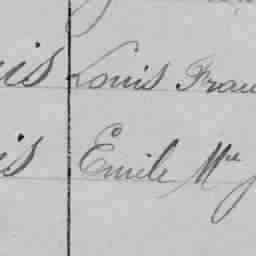 is Louis Fran
is Emile Mie